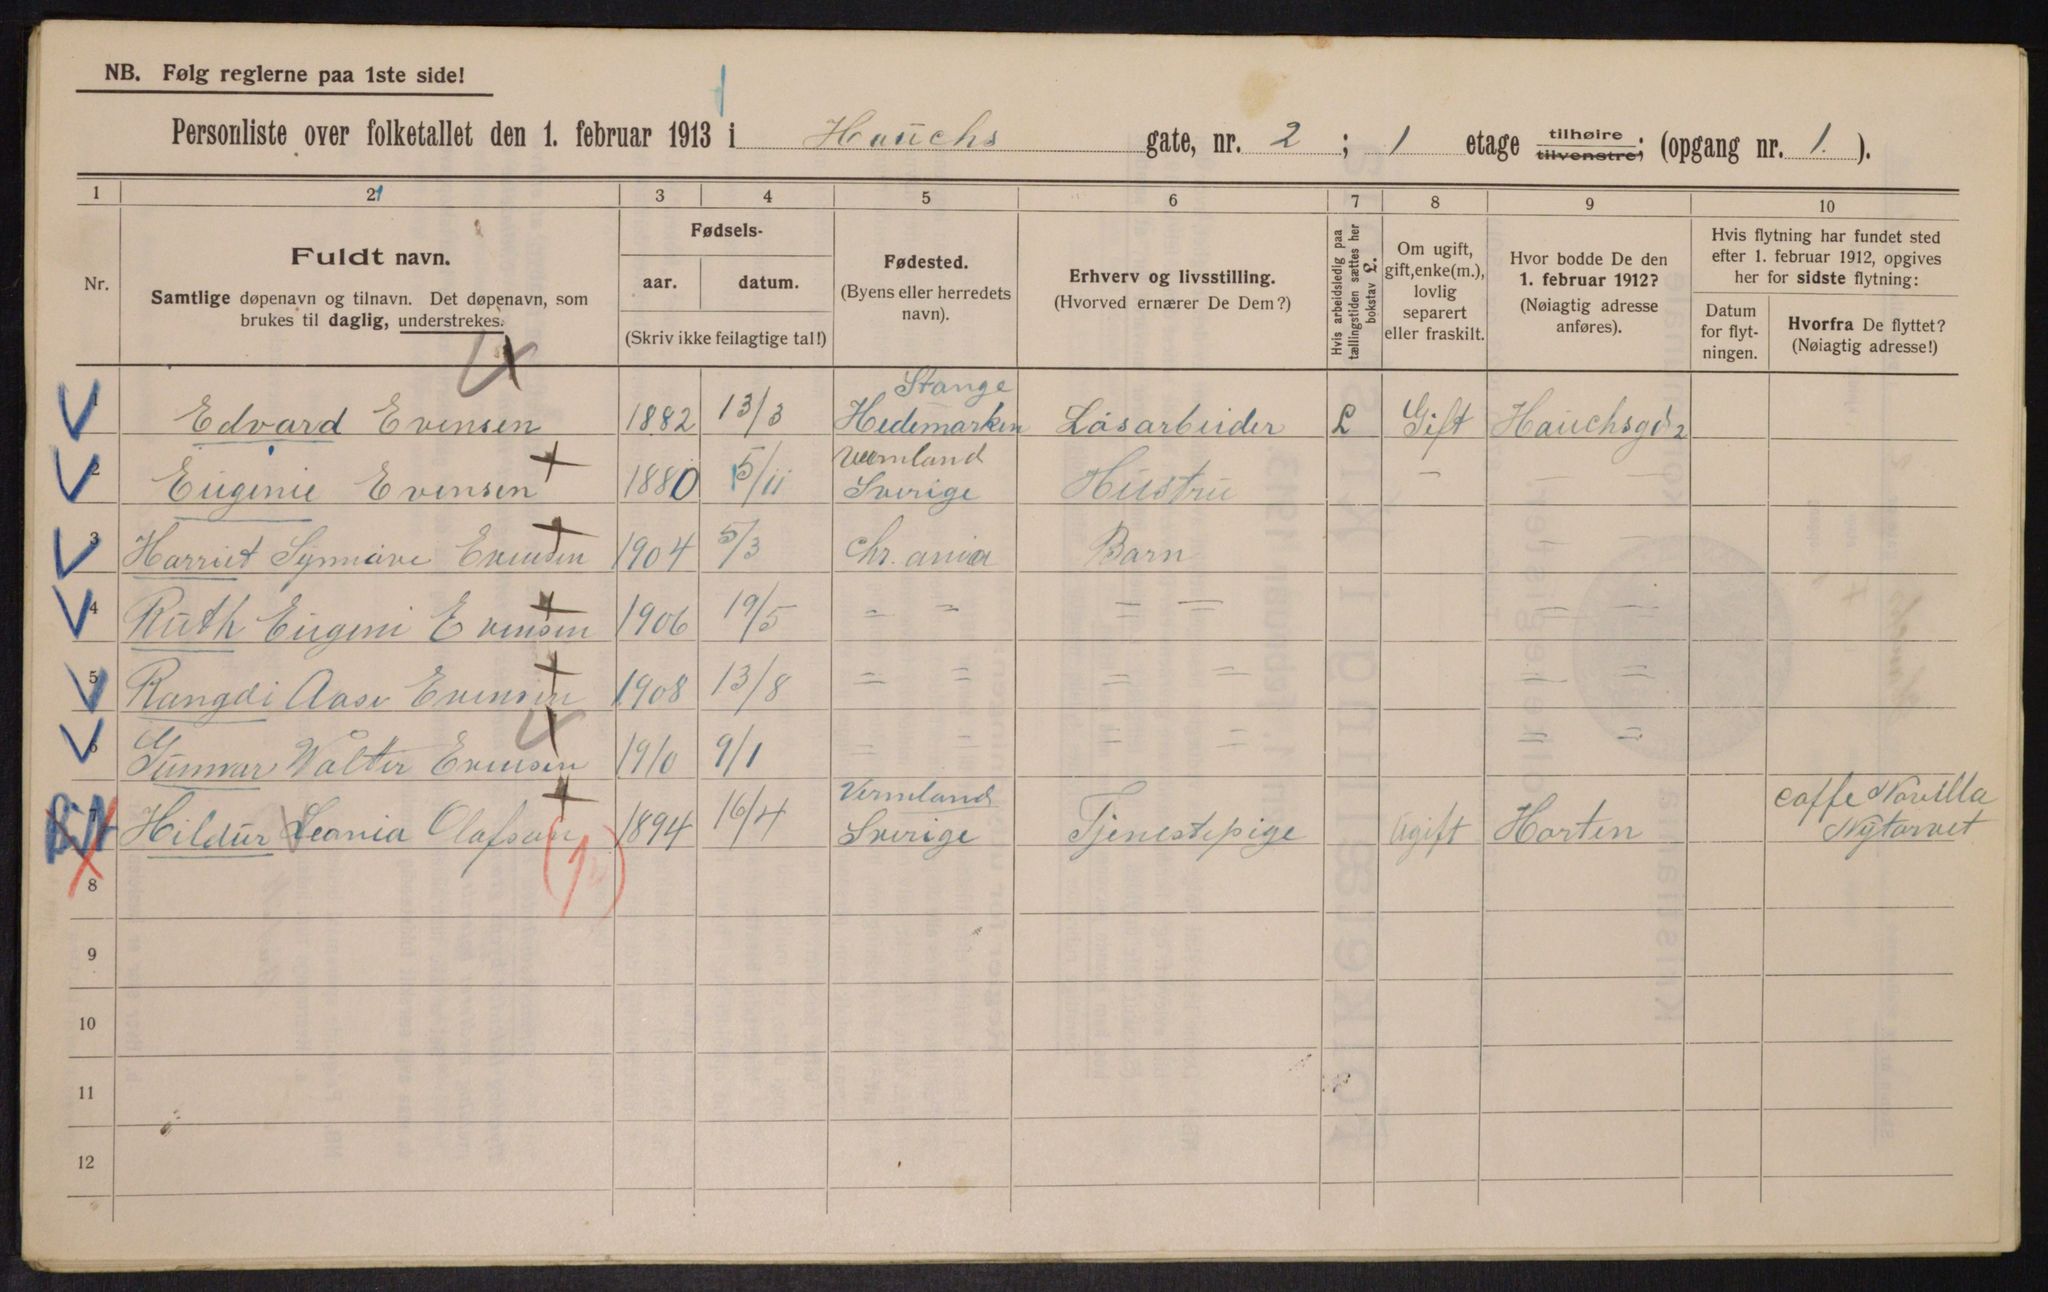 NB. Følg reglerne paa 1ste side!
Personliste over folketallet den 1. februar 1913 i Hauchs gate, nr. 2 ; 1 etage tilhøire tilvenstre; (opgang nr. 1. ).
1 2 3 4 5 6 7 8 9 10
Nr.
Fuldt navn.
Samtlige døpenavn og tilnavn. Det døpenavn, som
brukes til daglig, understrekes.
Fødsels-
aar. datum.
(Skriv ikke feilagtige tal!)
Fødested.
(Byens eller herredets
navn).
Erhverv og livsstilling.
(Hvorved ernærer De Dem?)
Hvis arbeidsledig paa
tællingstiden sættes her
bokstav L.
Om ugift,
gift, enke(m.),
lovlig
separert
eller fraskilt.
Hvor bodde De den
1. februar 1912?
(Nøiagtig adresse
anføres).
Hvis flytning har fundet sted
efter 1. februar 1912, opgives
her for sidste flytning:
Datum
for flyt-
ningen.
Hvorfra De flyttet?
(Nøiagtig adresse!)
Stange
1 Edvard Evensen 1882 13/3 Hedemarken Løsarbeider L Gift Hauchsgd 2
Vermland
2 Eugenie Evensen 1880 5/11 Sverige Hustru — —
3 Harriet Synnøve Evensen 1904 5/3 Chr. ania Barn — —
4 Ruth Eugeni Evensen 1906 19/5 = = = = — —
5 Rangdi Aase Evensen 1908 13/8 = = = = = =
6 Gunnar Walter Evensen 1910 9/1 = = = = = =
Vermland caffe Novilla
7 Hildur Leonia Olafson 1894 16/4 Sverige Tjenestepige Ugift Horten Nytorvet
8
9
10
11
12